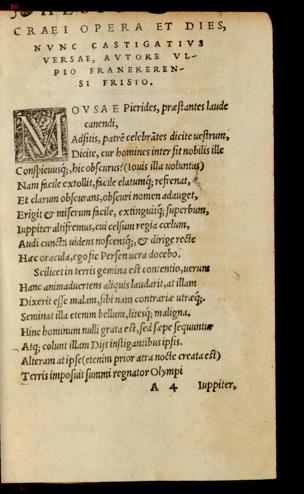 CRAEI OPERA ET DIES,
NVNC CASTIGATIVS
VERSAE, AVTORE VL-
PIO FRANEKEREN-
SI FRISIO.
MOVSAE Pierides, præstantes laude
canendi,
Adsitis, patrẽ celebrãtes dicite uestrum,
Dicite, cur homines inter sit nobilis ille
Conspicuusq́;, hic obscurus? (Iouis illa uoluntas)
Nam facile extollit, facile elatumq́; refrenat,
Et clarum obscurans, obscuri nomen adauget,
Erigit & miserum facile, extinguitq́; superbum,
Iuppiter altifremus, cui celsum regia cœlum,
Audi cuncta uidens noscensq́;, & dirige recte
Hæc oracula, ego sic Persen uera docebo.
Scilicet in terris gemina est contentio, uerum
Hanc animaduertens aliquis laudarit, at illam
Dixerit esse malam, sibi nam contrariæ utræq́;.
Seminat illa etenim bellum, litesq́; maligna,
Hinc hominum nulli grata est, sed sæpe sequuntur
Atq́; colunt illam Dijs instigantibus ipsis.
Alteram at ipse (etenim prior atra nocte creata est)
Terris imposuit summi regnator Olympi
A 4 Iuppiter,